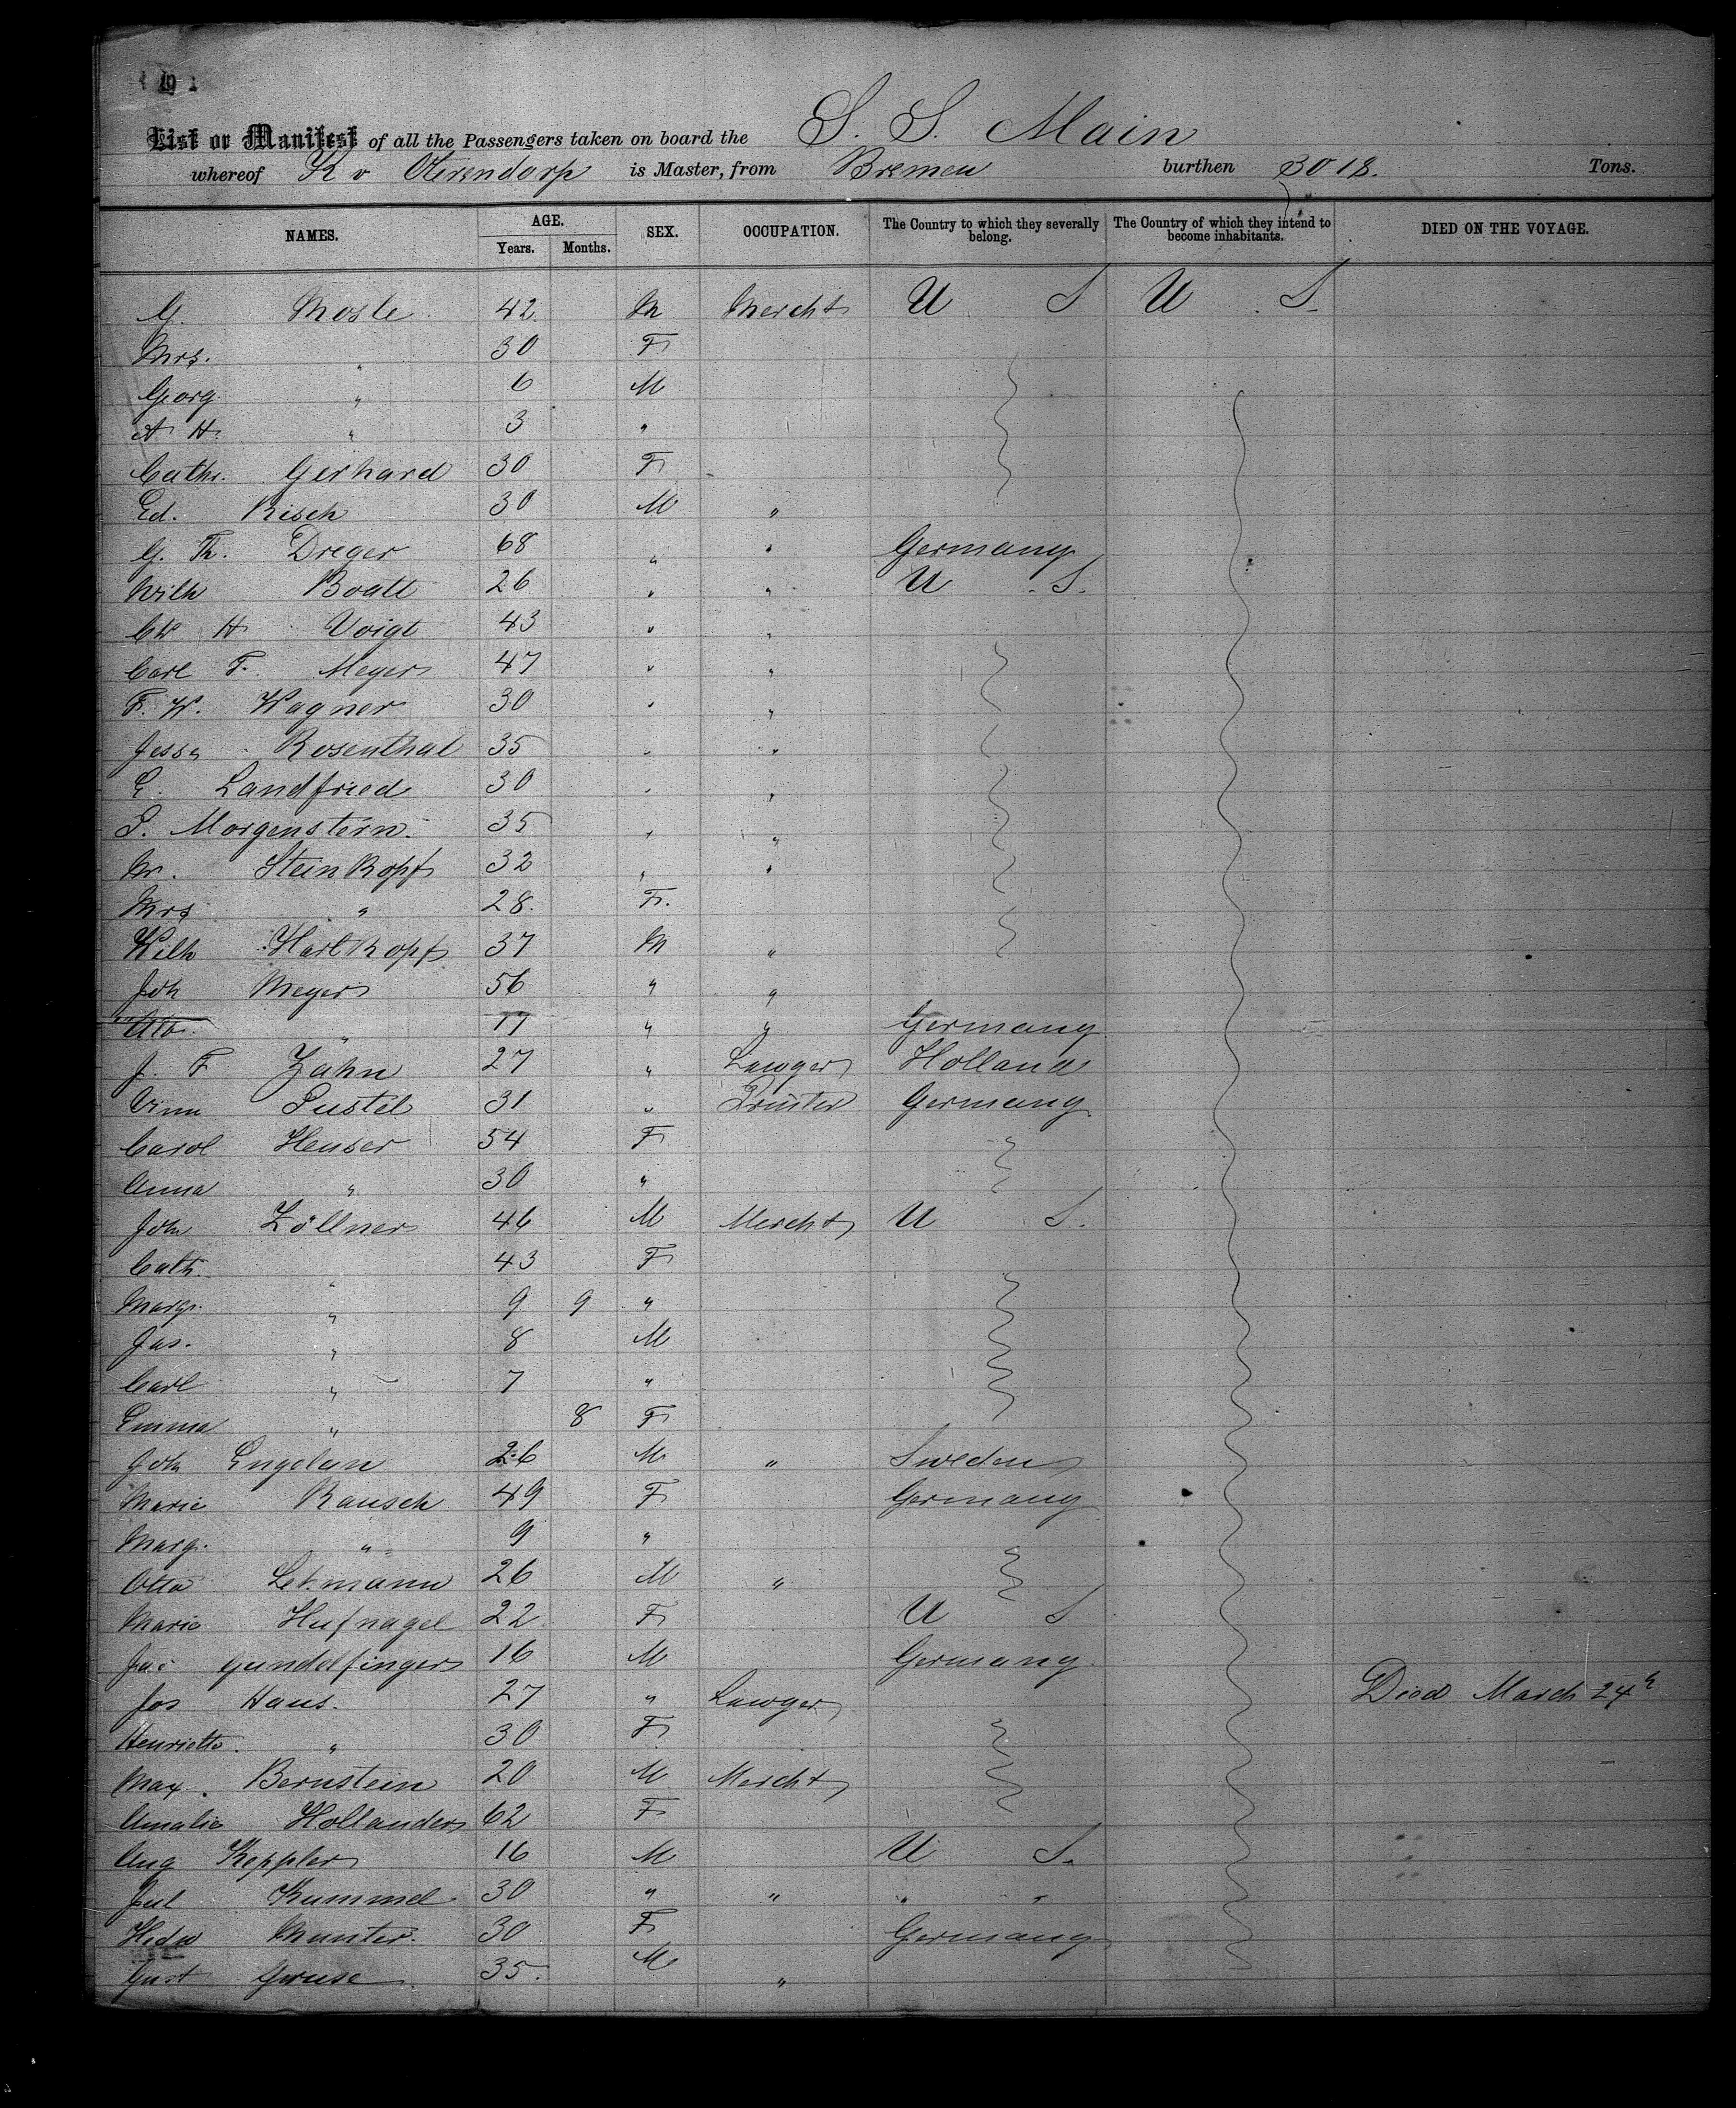 List or Manifest of all the Passengers taken on board the S. S. Main
whereof K v Oterendorp is Master, from Bremen burthen 3018. Tons.
NAMES. AGE. Years. Months. SEX. OCCUPATION. The Country to which they severally belong. The Country of which they intend to become inhabitants. DIED ON THE VOYAGE.
G. Mosle 42 M Mercht U S U S.
Mrs. " 30 F
Georg " 6 M
A H. " 3 "
Cathr. Gerhard 30 F
Ed. Risch 30 M "
G. Th. Dreger 68 " " Germany
Wilh Boatt 26 " " U S.
Ch H Voigt 43 " "
Carl F. Meyer 47 " "
F. W. Wagner 30 " "
Jessy Rosenthal 35 " "
E. Landfried 30 " "
S. Morgenstern. 35 " "
Mr. Steinkopf 32 " "
Mrs " 28. F.
Wilh Hartkopf 37 M "
Joh Meyer 56 " "
" 17 " " Germany
J. F Zahn 27 " Lawyer Holland
Pustel 31 " Printer Germany
Carol Heuser 54 F
Anna " 30 "
Joh Zöllner 46 M Mercht U S.
Cath. " 43 F
Marg. " 9 9 "
Jas. " 8 M
Carl " 7 "
Emma " 8 F
Joh Engelan 26 M " Sweden
Marie Rausch 49 F Germany
Marg. " 9 "
Otto Lehmann 26 M "
Marie Hufnagel 22 F U S
Jac Gundelfinger 16 M Germany
Jos Haus. 27 " Lawyer Died March 24th
Henriette " 30 F
Max. Bernstein 20 M Mercht
Amalie Hollander 62 F
Aug Keppler 16 M U S.
Jul Kummel 30 " " " "
Hedw Munter. 30 F Germany
Gust Gruse 35. M "